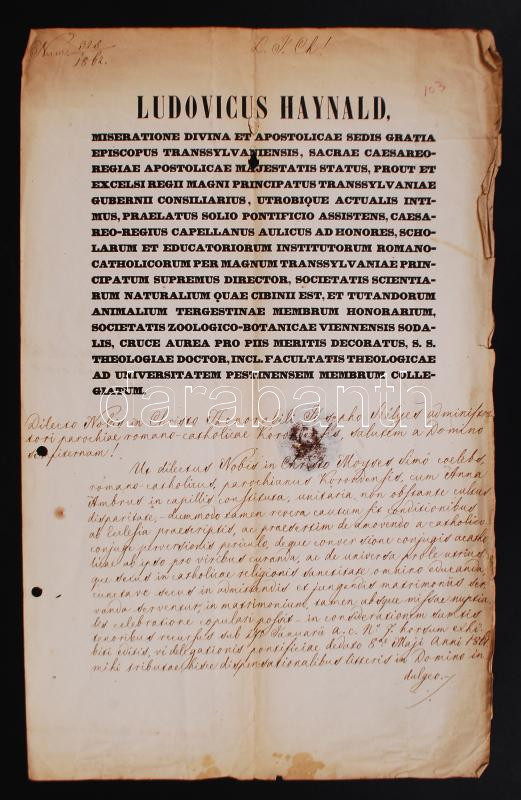 Num. 328/1862.
L. J. Ch!
103
LUDOVICUS HAYNALD,
MISERATIONE DIVINA ET APOSTOLICAE SEDIS GRATIA
EPISCOPUS TRANSSYLVANIENSIS, SACRAE CAESAREO-
REGIAE APOSTOLICAE MAJESTATIS STATUS, PROUT ET
EXCELSI REGII MAGNI PRINCIPATUS TRANSSYLVANIAE
GUBERNII CONSILIARIUS, UTROBIQUE ACTUALIS INTI-
MUS, PRAELATUS SOLIO PONTIFICIO ASSISTENS, CAESA-
REO-REGIUS CAPELLANUS AULICUS AD HONORES, SCHO-
LARUM ET EDUCATORIORUM INSTITUTORUM ROMANO-
CATHOLICORUM PER MAGNUM TRANSSYLVANIAE PRIN-
CIPATUM SUPREMUS DIRECTOR, SOCIETATIS SCIENTIA-
RUM NATURALIUM QUAE CIBINII EST, ET TUTANDORUM
ANIMALIUM TERGESTINAE MEMBRUM HONORARIUM,
SOCIETATIS ZOOLOGICO-BOTANICAE VIENNENSIS SODA-
LIS, CRUCE AUREA PRO PIIS MERITIS DECORATUS, S. S.
THEOLOGIAE DOCTOR, INCL. FACULTATIS THEOLOGICAE
AD UNIVERSITATEM PESTINENSEM MEMBRUM COLLE-
GIATUM.
darabanth
Dilecto Nobis in Christo Honorabili Josepho administra-
tori parochiae romano-catholicae salutem a Domino
sempiternam!
Ut dilectus Nobis in Christo Moyses Simó coelebs,
romano-catholicus, parochianus Korondensis, cum Anna
Ambrus in capillis constituta, unitaria, non obstante cultus
disparitate, dummodo tamen rerera cautum sit conditionibus
ab Ecclesia praescriptis, ac praesertim de amovendo a catholico
conjuge perversionis periculo, deque conversione conjugis acatho-
licae ab ipso pro viribus curanda, ac de universa prole utrius-
que sexus in catholicae religionis sanctitate omnino educanda
cunctave secus in admittendis et jungendis matrimoniis ser-
vanda serventur, in matrimonium, tamen absque missae nuptia-
lis celebratione copulari possit in considerationem sumtis
tenoribus recursus sub 27a Januarii a. c. No 7. horsum exhi-
biti editis, vi delegationis pontificiae de dato 8ae Maji Anni 1861
mihi tributae, hisce dispensationalibus litteris in Domino in-
dulgeo.